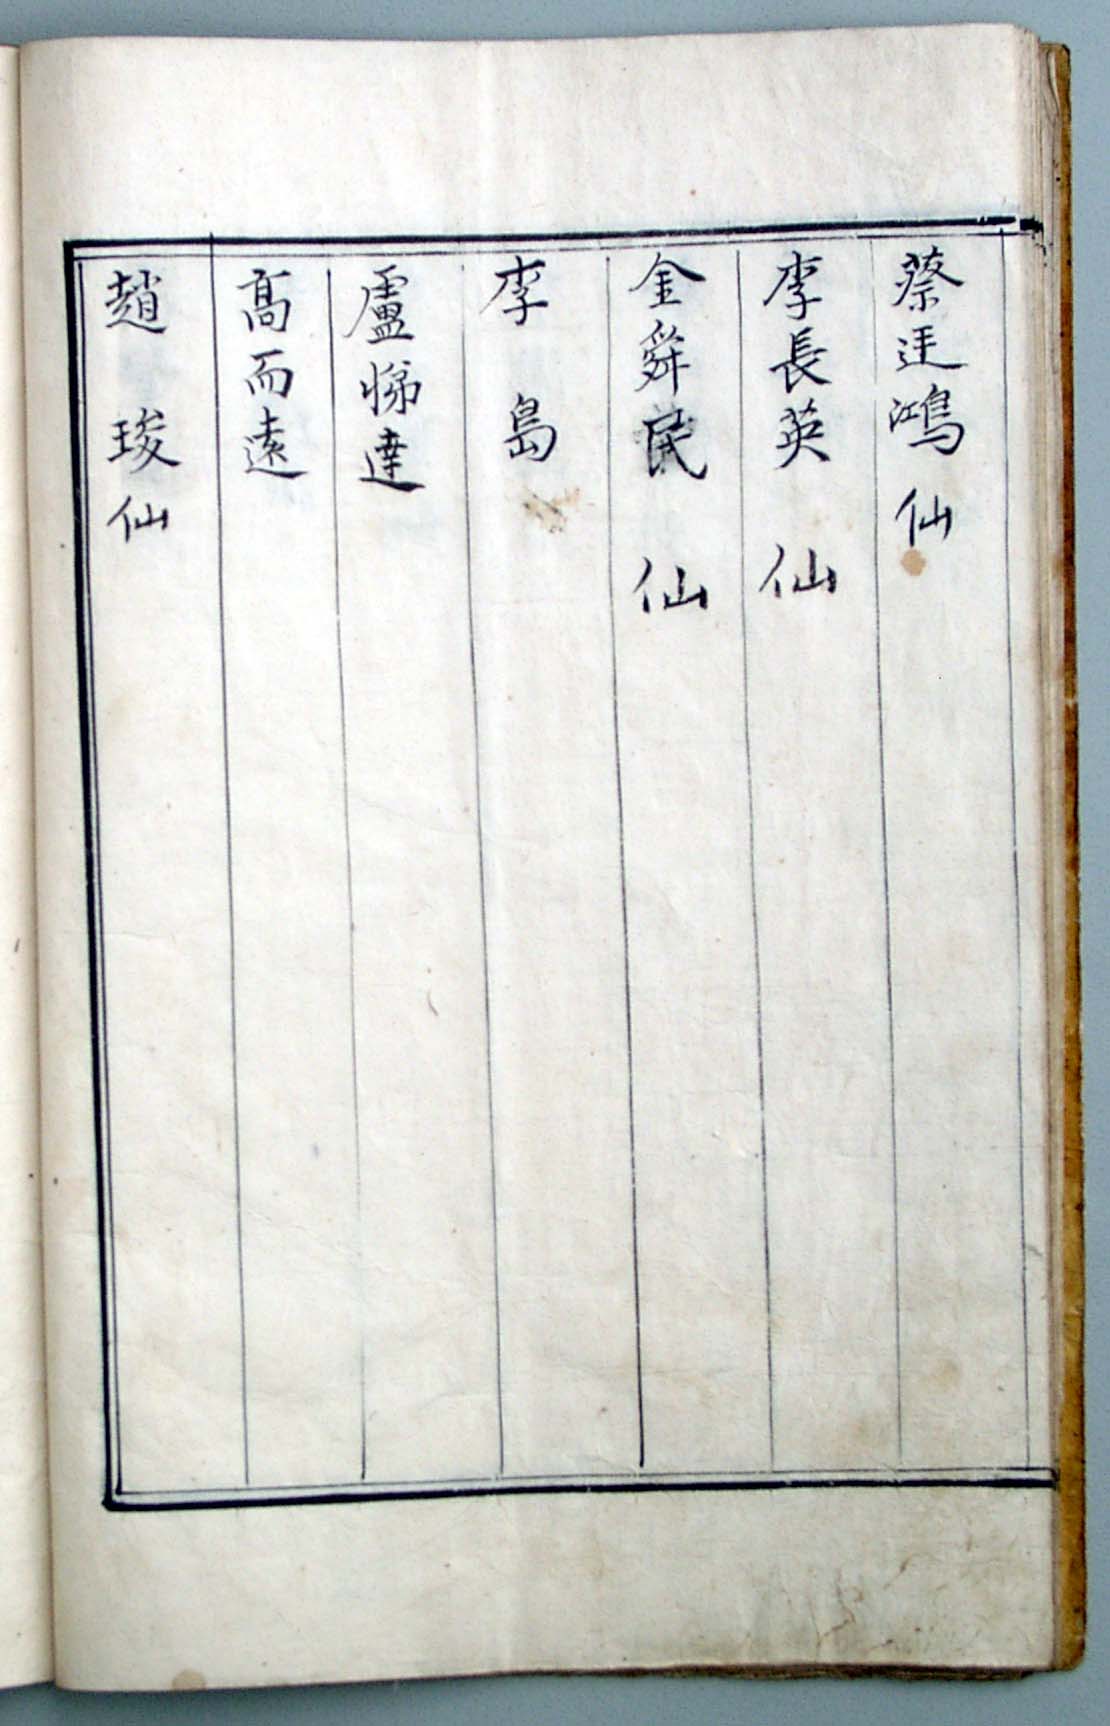 蔡廷鴻 仙
李長英 仙
金舜民 仙
李 島
盧悌達
高而遠
趙 琡仙